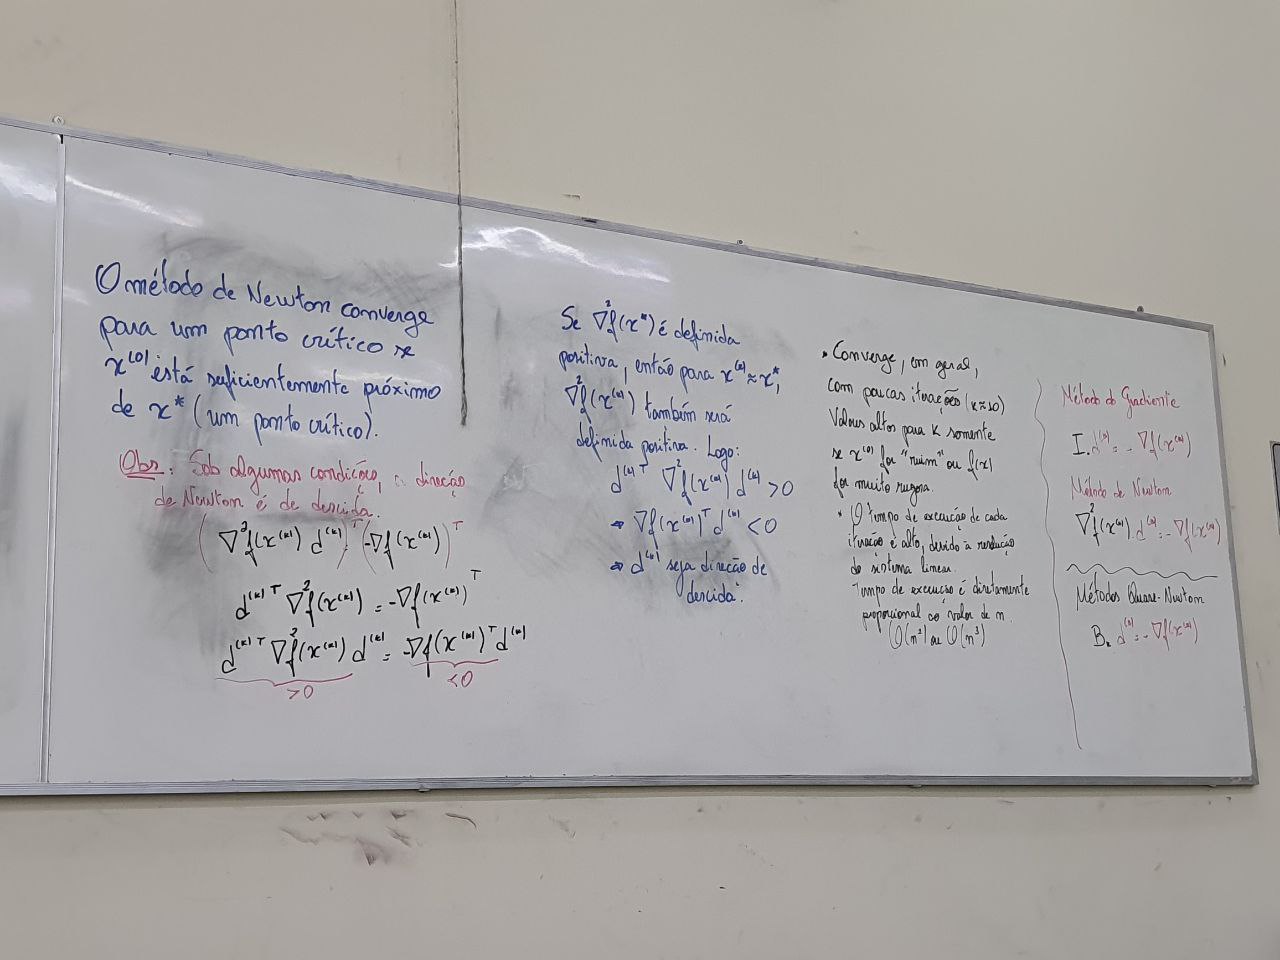 O método de Newton converge
para um ponto crítico se
x⁽⁰⁾ está suficientemente próximo
de x* (um ponto crítico).
Obs.: Sob algumas condições, a direção
de Newton é de descida.
(∇²f(x⁽ᵏ⁾) d⁽ᵏ⁾)ᵀ = (-∇f(x⁽ᵏ⁾))ᵀ
d⁽ᵏ⁾ᵀ ∇²f(x⁽ᵏ⁾) = -∇f(x⁽ᵏ⁾)ᵀ
d⁽ᵏ⁾ᵀ ∇²f(x⁽ᵏ⁾) d⁽ᵏ⁾ = -∇f(x⁽ᵏ⁾)ᵀ d⁽ᵏ⁾
>0 <0
Se ∇²f(x*) é definida
positiva, então para x⁽ᵏ⁾ ≈ x*,
∇²f(x⁽ᵏ⁾) também será
definida positiva. Logo:
d⁽ᵏ⁾ᵀ ∇²f(x⁽ᵏ⁾) d⁽ᵏ⁾ > 0
⇒ ∇f(x⁽ᵏ⁾)ᵀ d⁽ᵏ⁾ < 0
⇒ d⁽ᵏ⁾ seja direção de
descida.
• Converge, em geral,
com poucas iterações (k≈10)
Valores altos para k somente
se x⁽⁰⁾ for "ruim" ou f(x)
for muito rugosa.
• O tempo de execução de cada
iteração é alto, devido à resolução
do sistema linear.
Tempo de execução é diretamente
proporcional ao valor de n.
O(n²) ou O(n³)
Método do Gradiente
I. d⁽ᵏ⁾ = - ∇f(x⁽ᵏ⁾)
Método de Newton
∇²f(x⁽ᵏ⁾). d⁽ᵏ⁾ = - ∇f(x⁽ᵏ⁾)
Métodos Quase-Newton
Bₖ d⁽ᵏ⁾ = - ∇f(x⁽ᵏ⁾)